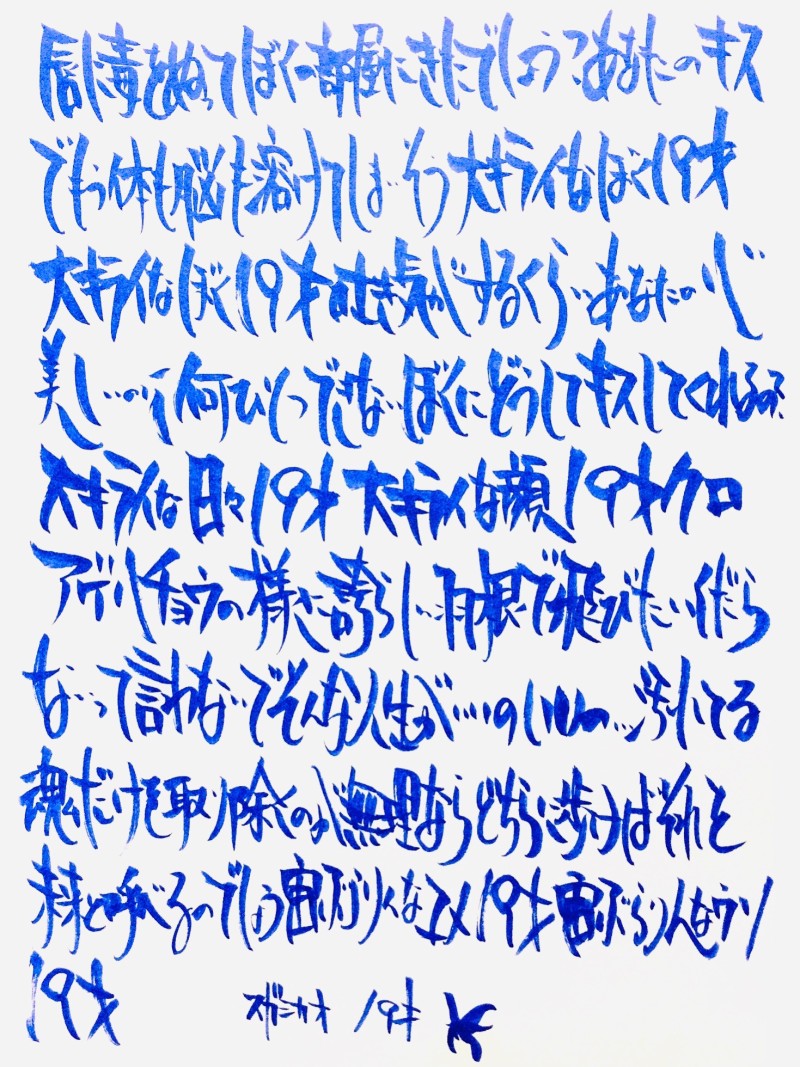 唇に毒をぬってぼくの部屋にきたでしょう?あなたのキス
でもう体も脳も溶けてしまいそう 大キライなぼく19才
大キライなぼく19才 吐き気がするくらいあなたの
美しいのに何ひとつできないぼくにどうしてキスしてくれるの?
大キライな日々19才 大キライな顔19才 クロ
アゲハチョウの様に誇らしい羽根で飛びたい くだら
ないって言わないでそんな人生が…のいいの…汚れてる
魂だけを取り除くのが無理ならどちらに歩けばそれを
未来と呼べるのでしょう 宙ぶらりんなユメ19才 宙ぶらりんなウソ
19才 スガシカオ 19才